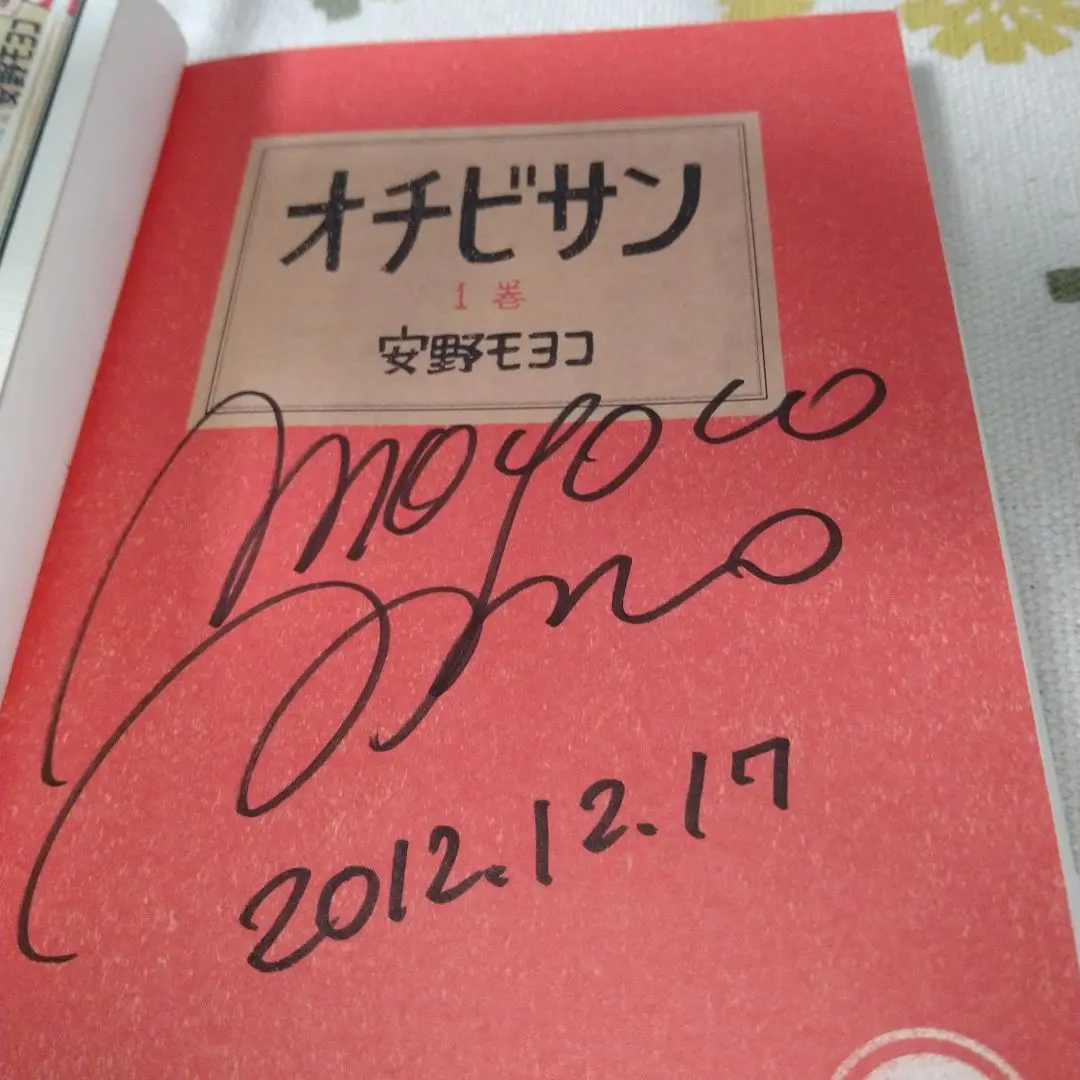 安野モヨコ
オチビサン
1巻
安野モヨコ
moyoco
Anno
2012.12.17